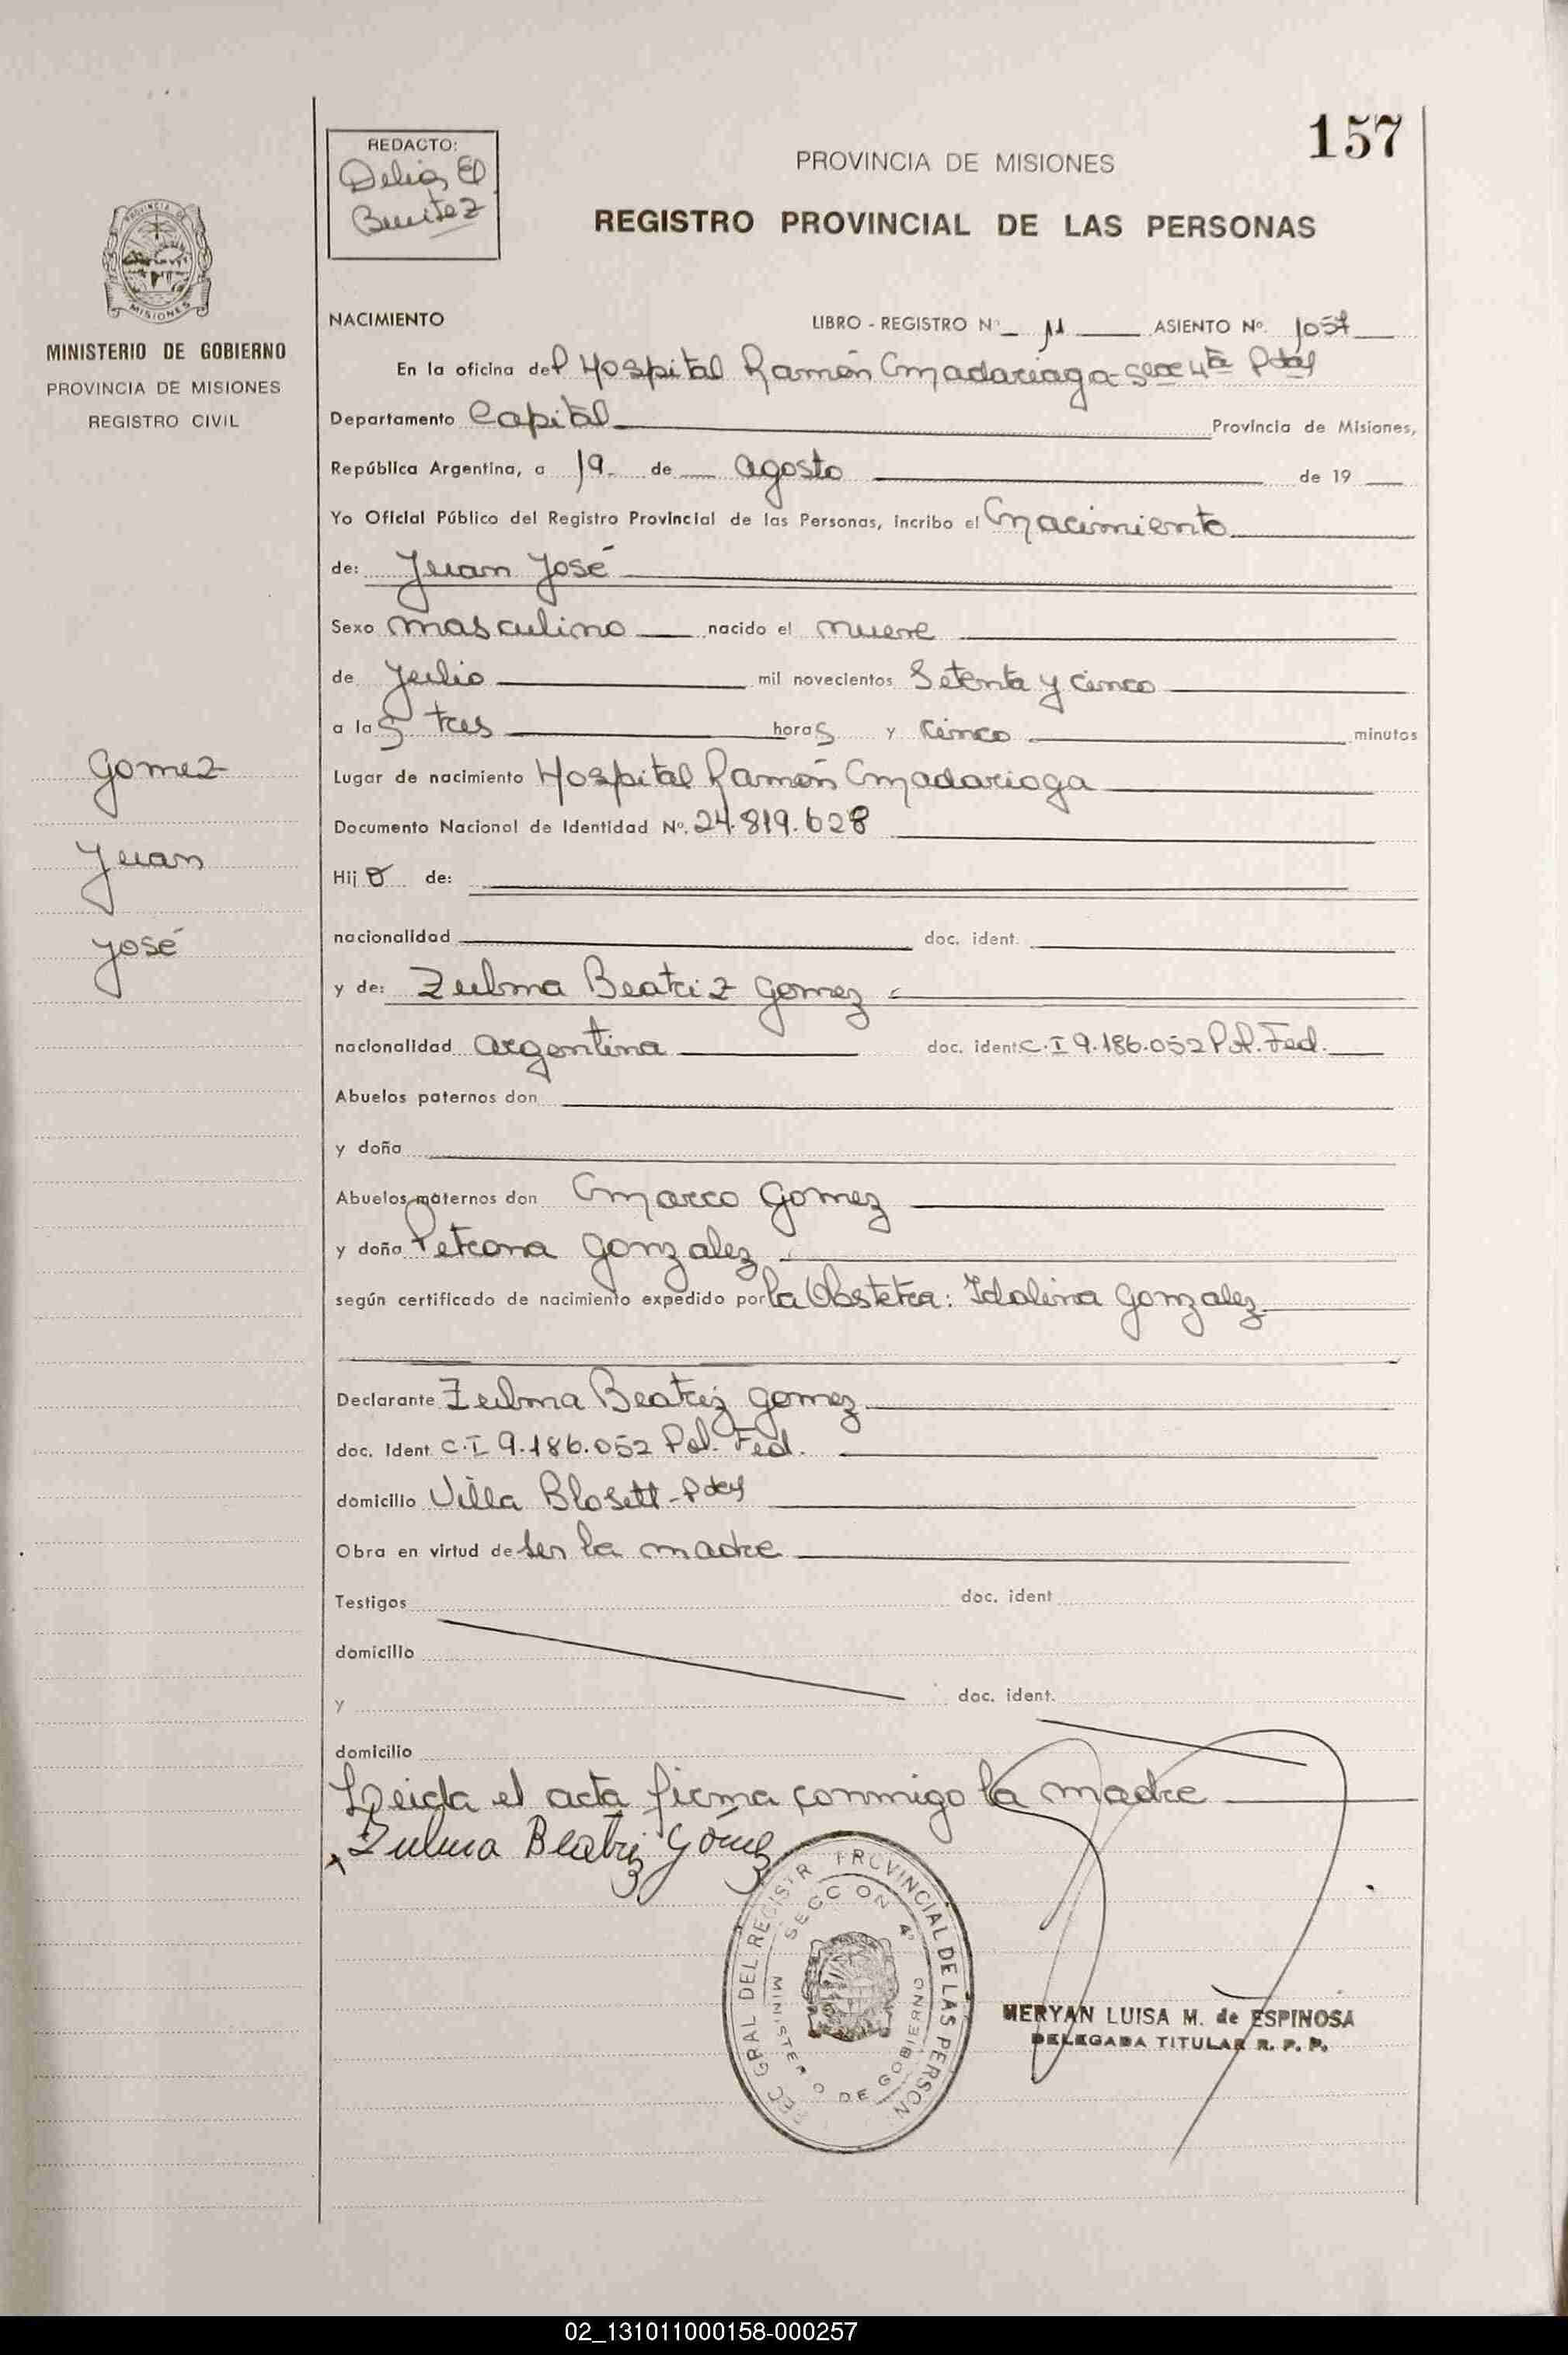 157
REDACTO:
Delia E
Benitez
PROVINCIA DE MISIONES
REGISTRO PROVINCIAL DE LAS PERSONAS
MINISTERIO DE GOBIERNO
PROVINCIA DE MISIONES
REGISTRO CIVIL
NACIMIENTO LIBRO - REGISTRO Nº 11 ASIENTO Nº. 1057
En la oficina del Hospital Ramón Madariaga Secc 4ta Pdas
Departamento Capital Provincia de Misiones,
República Argentina, a 19 de agosto de 19
Yo Oficial Público del Registro Provincial de las Personas, incribo el Nacimiento
de: Juan José
Sexo masculino nacido el nueve
de Julio mil novecientos Setenta y cinco
a las tres horas y cinco minutos
Lugar de nacimiento Hospital Ramón Madariaga
Documento Nacional de Identidad Nº. 24.819.628
Hijo de:
nacionalidad doc. ident.
y de: Zulma Beatriz Gomez
nacionalidad argentina doc. ident C.I 9.186.052 Pol. Fed.
Abuelos paternos don
y doña
Abuelos maternos don Marco Gomez
y doña Petrona Gonzalez
según certificado de nacimiento expedido por la Obstetra: Idalina Gonzalez
Declarante Zulma Beatriz Gomez
doc. Ident C.I 9.186.052 Pol. Fed.
domicilio Villa Blosett - Pdas
Obra en virtud de ser la madre
Testigos doc. ident
domicilio
y doc. ident.
domicilio
Leida el acta firma conmigo la madre
Zulma Beatriz Gómez
Gomez
Juan
José
SECCION 4º
MINISTERIO DE GOBIERNO
MERYAN LUISA M. de ESPINOSA
DELEGADA TITULAR R. P. P.
02_131011000158-000257